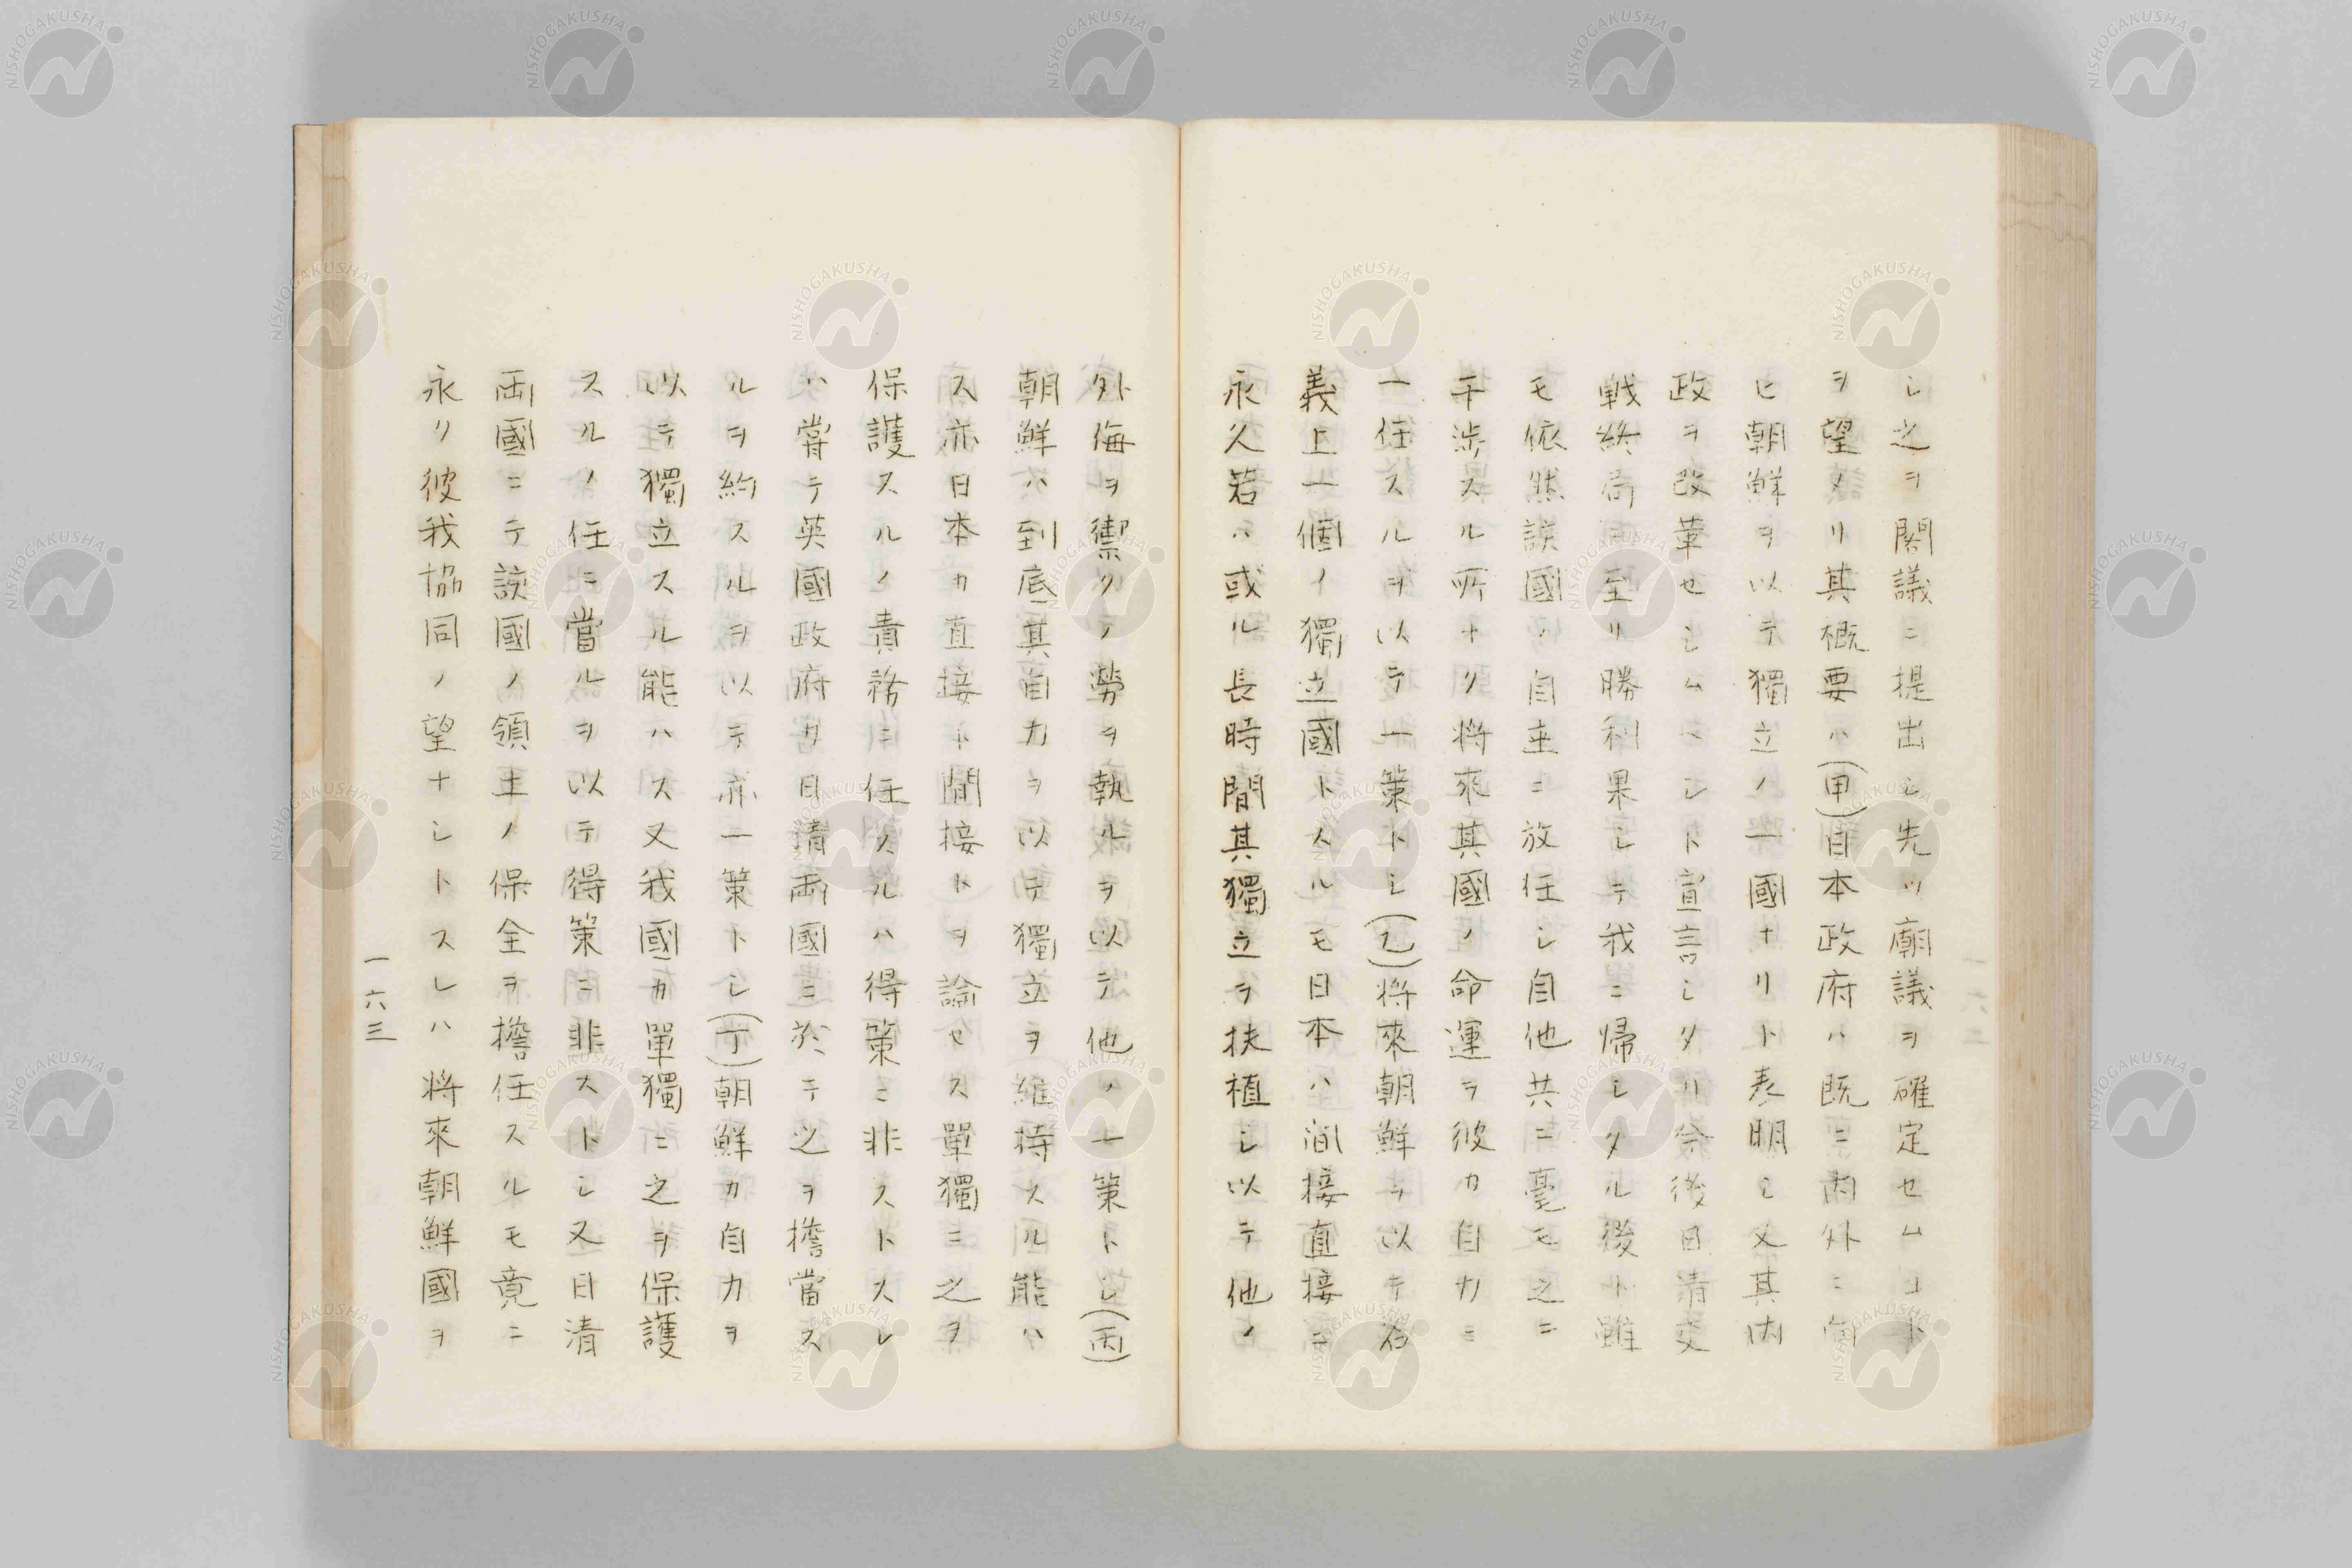 シ之ヲ閣議ニ提出シ先ツ廟議ヲ確定セムコト
ヲ望メリ其概要ハ(甲)日本政府ハ既ニ内外ニ向
ヒ朝鮮ヲ以テ獨立ノ一國ナリト表明シ又其内
政ヲ改革セシムヘシト宣言シタリ今後日清交
戦終局ニ至リ勝利果シテ我ニ帰シタル後ト雖
モ依然該國ノ自主ニ放任シ自他共ニ毫モ之ニ
干渉スル所ナク将來其國ノ命運ヲ彼カ自力ニ
一任スルヲ以テ一策トシ(乙)将來朝鮮ヲ以テ名
義上一個ノ獨立國トスルモ日本ハ間接直接ニ
永久若ハ或ル長時間其獨立ヲ扶植シ以テ他ノ
外侮ヲ禦クノ勞ヲ執ルヲ以テ他ノ一策トシ(丙)
朝鮮ハ到底其自力ヲ以テ獨立ヲ維持スル能ハ
ス亦日本カ直接ト間接トヲ論セス單獨ニ之ヲ
保護スルノ責務ニ任スルハ得策ニ非ストスレ
ハ嘗テ英國政府カ日清両國ニ於テ之ヲ擔當ス
ルヲ約スルヲ以テ亦一策トシ(丁)朝鮮カ自力ヲ
以テ獨立スル能ハス又我國カ單獨ニ之ヲ保護
スルノ任ニ當ルヲ以テ得策ニ非ストシ又日清
両國ニテ該國ノ領土ノ保全ヲ擔任スルモ竟ニ
永ク彼我協同ノ望ナシトスレハ将來朝鮮國ヲ
一六三
NISHOGAKUSHA